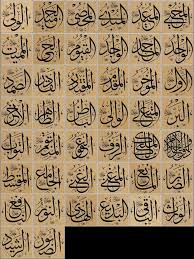 المحيي المعيد المبدئ المحصي الحميد الولي
الواحد الماجد الواجد القيوم الحي المميت
الأول المؤخر المقدم المقتدر القادر الصمد
البر المتعالي الوالي الباطن الظاهر الآخر
مالك الملك الرؤوف العفو المنتقم التواب
الضار المانع المغني الغني الجامع المقسط
الوارث الباقي البديع الهادي النور النافع
الصبور الرشيد